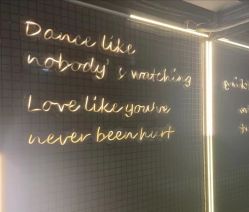 Dance like
nobody's watching
Love like you've
never been hurt